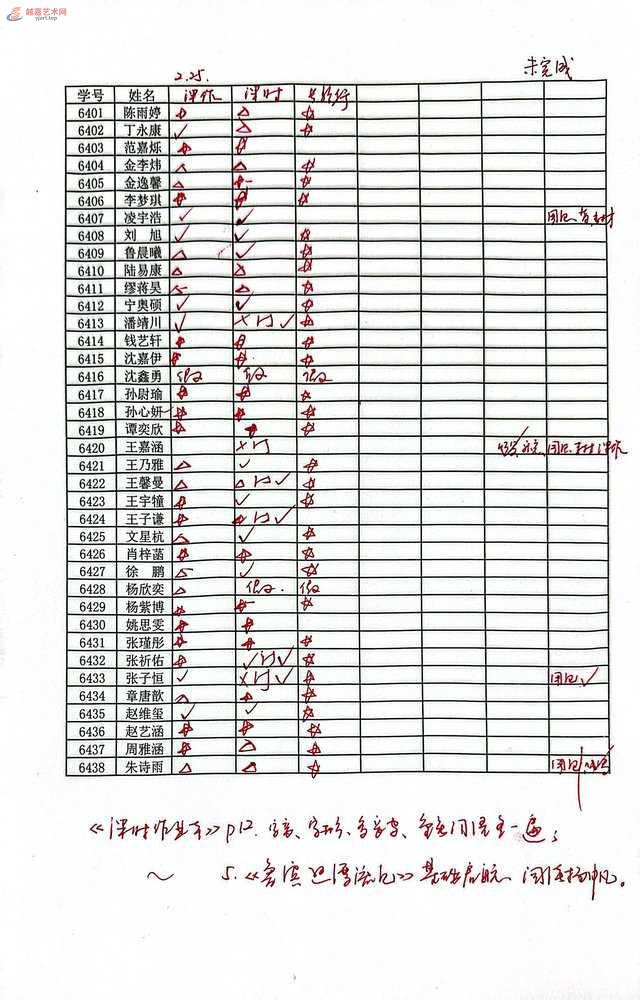 越嘉艺术网
yjart.top
2.25.
未完成
学号 姓名 课作 课时
6401 陈雨婷 ☆ △ ☆
6402 丁永康 ✓ △ ☆
6403 范嘉烁 ☆ ☆
6404 金李炜 △ △ ☆
6405 金逸馨 △ ☆ ☆
6406 李梦琪 ☆ ☆ ☆
6407 凌宇浩 ✓ ✓
6408 刘旭 ✓ ✓ ☆
6409 鲁晨曦 △ ✓ ☆
6410 陆易康 △ △ ☆
6411 缪蒋昊 △ △ ☆
6412 宁奥硕 ✓ ✓ ☆
6413 潘靖川 ✓ ×订✓ ☆
6414 钱艺轩 ☆ ☆ ☆
6415 沈嘉伊 ☆ ☆ ☆
6416 沈鑫勇 假 假 假
6417 孙尉瑜 ☆ ☆ ☆
6418 孙心妍 ☆ ☆ ☆
6419 谭奕欣 ☆ ☆ ☆
6420 王嘉涵 ×订
6421 王乃雅 △ ✓ ☆
6422 王馨曼 △ △订✓ ☆
6423 王宇犝 ☆ ✓ ☆
6424 王子谦 ☆ ☆订✓ ☆
6425 文星杭 △ ✓ ☆
6426 肖梓菡 ☆ ☆ ☆
6427 徐鹏 △ ✓ ☆
6428 杨欣奕 △ 假 假
6429 杨紫博 ☆ ☆ ☆
6430 姚思雯 ☆ ☆
6431 张瑾彤 ☆ ☆ ☆
6432 张祈佑 ☆ ✓订✓ ☆
6433 张子恒 ✓ ×订✓ ☆ ✓
6434 章唐歆 △ ☆ ☆
6435 赵维玺 ✓ ✓ ☆
6436 赵艺涵 ☆ ☆ ☆
6437 周雅涵 ☆ △ ☆
6438 朱诗雨 △ △ ☆
《课时作业本》P12. 字音、字形、
～ 5.《鲁滨逊漂流记》基础启航、阅读扬帆。